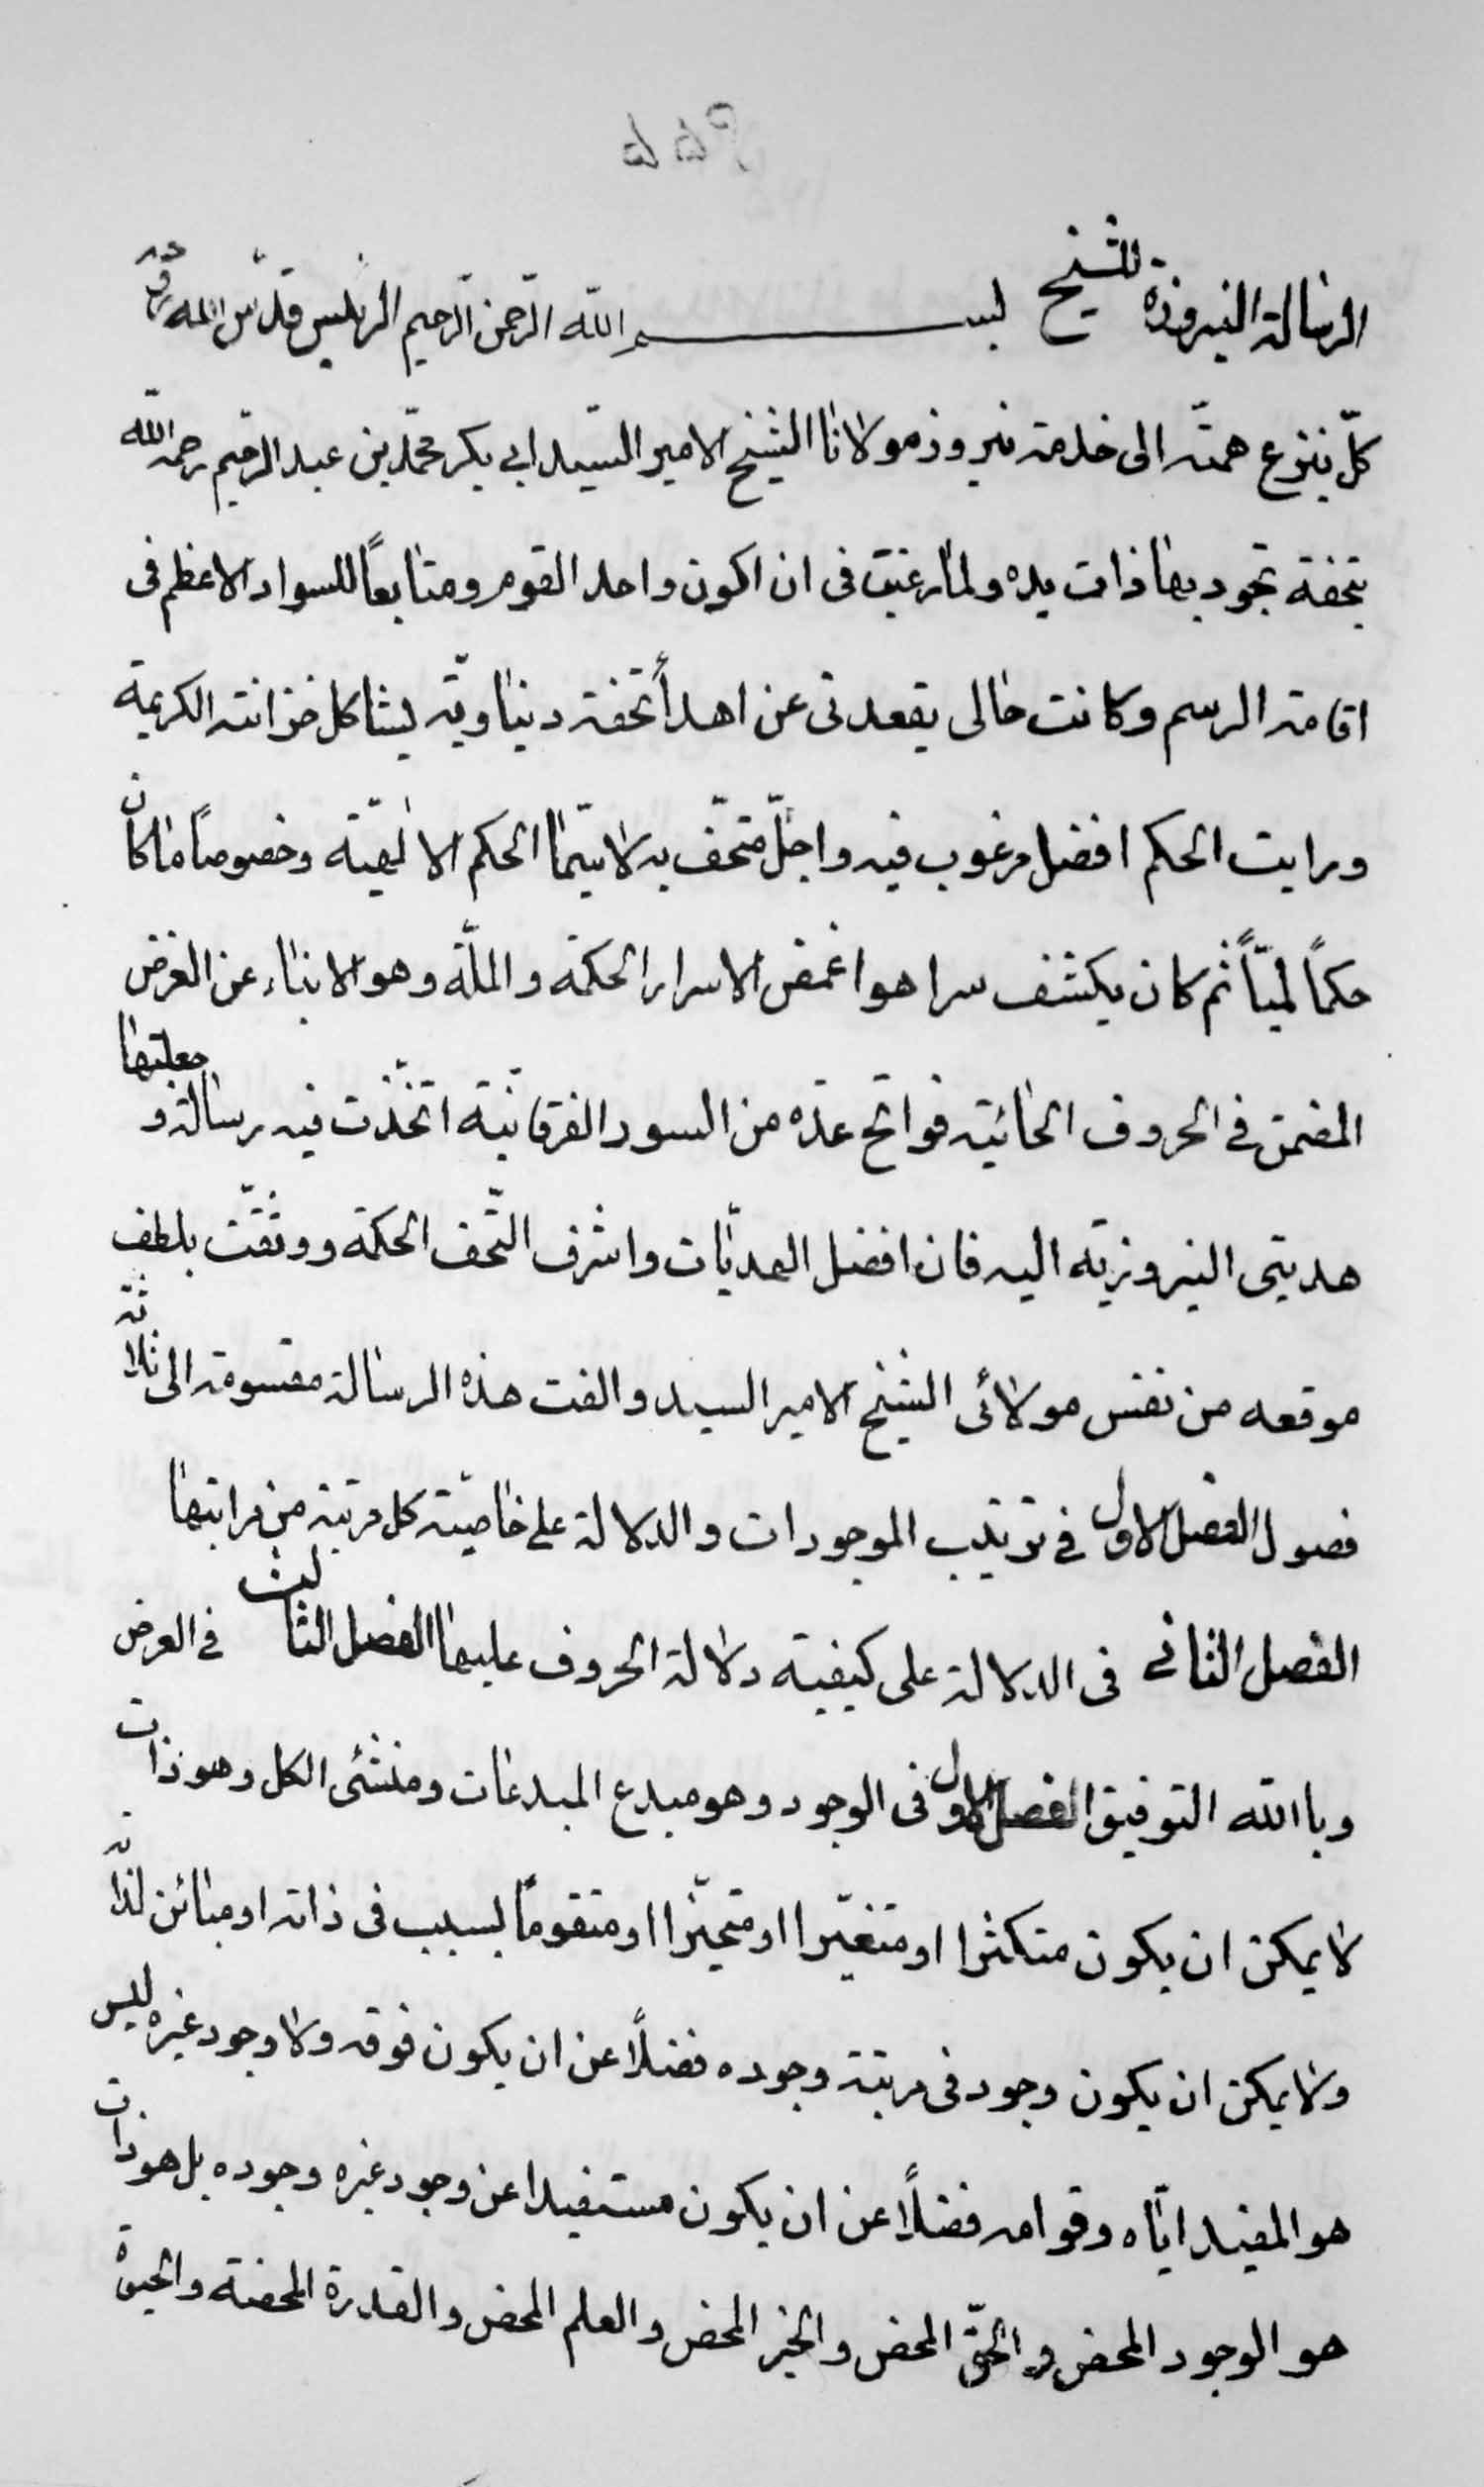 الرسالة النيروزة للشيخ بسم الله الرحمن الرحيم الرئيس قدس الله
كلّ ينزع همته الى خدمة نيروز مولانا الشيخ الامير السيد ابى بكر محمّد بن عبد الرحيم رحمه الله
بتحفة تجود بها ذات يده ولما رغبت فى ان اكون واحد القوم ومتابعاً للسواد الاعظم فى
اقامة الرسم وكانت حالى يقعدنى عن اهدأ تحفة دنياويّة يشاكل خزانته الكريمة
ورايت الحكم افضل مرغوب فيه واجلّ متحّف به لا سيّما الحكم الالهيّة وخصوصاً ما كان
حكماً لميّاً ثم كان يكشف سرا هو اغمض الاسرار الحكمة والملّة وهو الانباء عن الغرض
المضمن فى الحروف الهائية فواتح عدّه من السور الفرقانيّة اتخّذت فيه رسالة و جعلتها
هديتى النيروزيّة اليه فان افضل الهديّات واشرف التّحف الحكمة ووثقّت بلطف
موقعه من نفس مولائى الشيخ الامير السيد والفت هذه الرسالة مقسومة الى ثلاثة
فصول الفصل الاول فى ترتيب الموجودات والدلالة على خاصيّة كل مرتبة من مراتبها
الفصل الثانى فى الدلالة على كيفية دلالة الحروف عليها الفصل الثالث فى الغرض
وبا الله التوفيق الفصل الاول فى الوجود وهو مبدع المبدعات ومنشئى الكل وهو ذات
لا يمكن ان يكون متكثرا او متغيّرا او متحيّزا او متقوماً بسبب فى ذاته او مبائن لذاته
ولا يمكن ان يكون وجود فى مرتبة وجوده فضلاً عن ان يكون فوقه ولا وجود غيره ليس
هو المفيد ايّاه وقوامه فضلاً عن ان يكون مستفيدا عن وجود غيره وجوده بل هو ذات
هو الوجود المحض و الحقّ المحض والخير المحض والعلم المحض والقدرة المحضة والحيوة